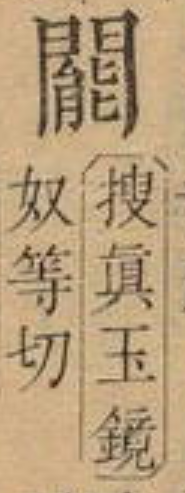 𨶙
搜眞玉鏡
奴等切